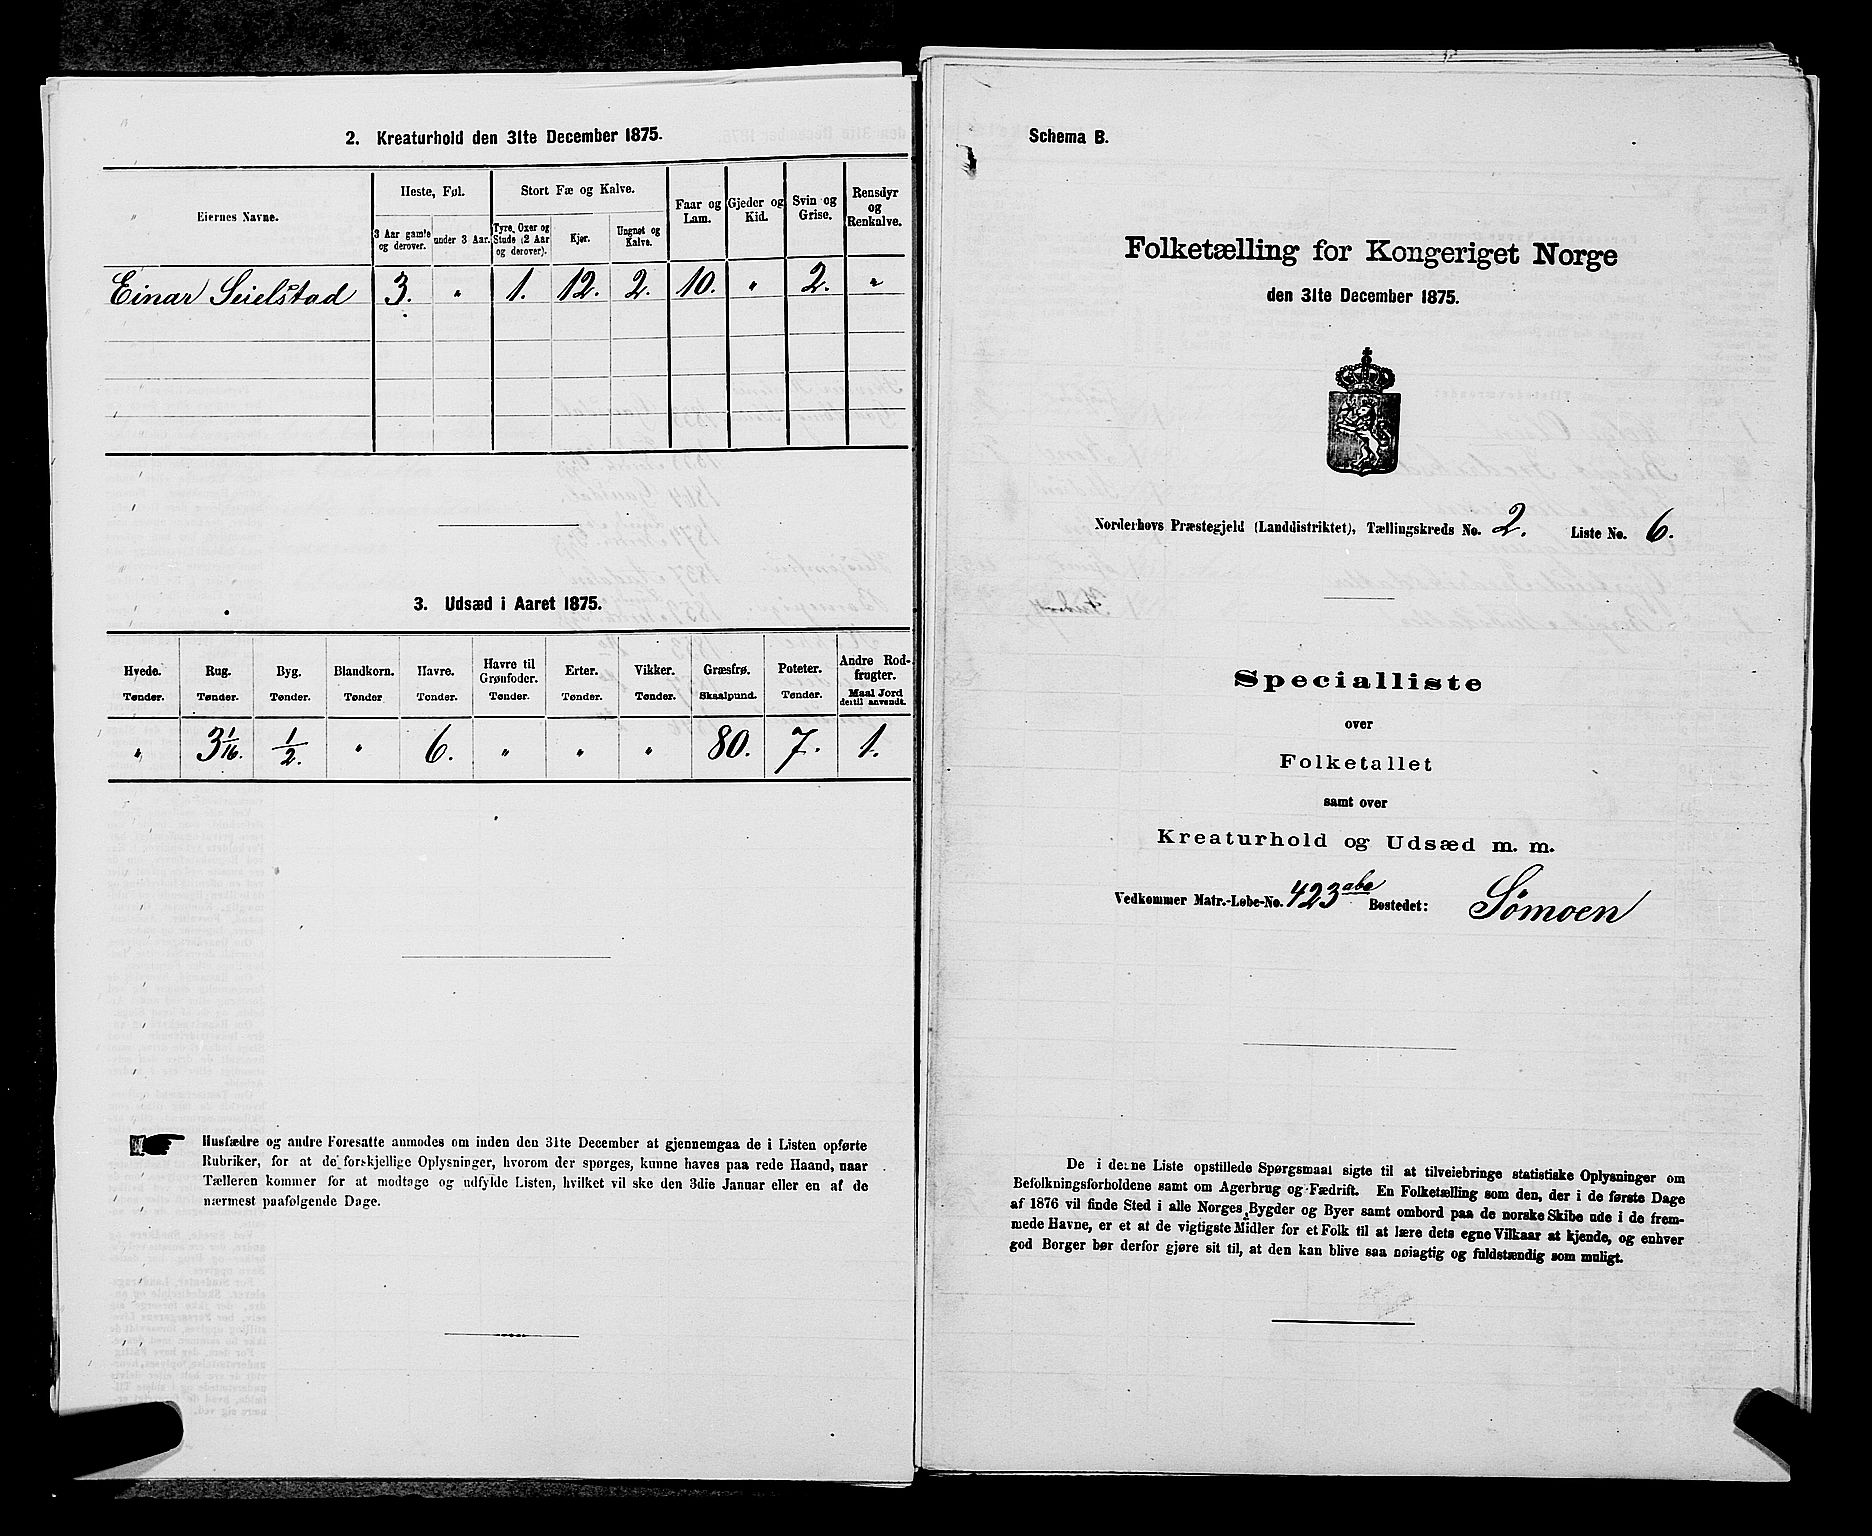 2. Kreaturhold den 31te December 1875.
Eiernes Navne.
Heste, Føl.
Stort Fæ og Kalve.
Faar og Lam.
Gjeder og Kid.
Svin og Grise.
Rensdyr og Renkalve.
3 Aar gamle og derover.
under 3 Aar.
Tyre, Oxer og Stude (2 Aar og derover).
Kjør.
Ungnøt og Kalve.
Einar Seielstad 3. " 1. 12. 2. 10. " 2. "
3. Udsæd i Aaret 1875.
Hvede. Rug. Byg. Blandkorn. Havre. Havre til Grønfoder. Erter. Vikker. Græsfrø. Poteter. Andre Rodfrugter.
Tønder. Tønder. Tønder. Tønder Tonder. Tønder. Tønder. Tønder. Skaalpund. Tønder. Maal Jord dertil anvendt.
" 3 1/16. 1/2. " 6. " " " 80. 7. 1.
Husfædre og andre Foresatte anmodes om inden den 31te December at gjennemgaa de i Listen opførte
Rubriker, for at de forskjellige Oplysninger, hvorom der spørges, kunne haves paa rede Haand, naar
Tælleren kommer for at modtage og udfylde Listen, hvilket vil ske den 3die Januar eller en af de
nærmest paafølgende Dage.
Schema B.
Folketælling for Kongeriget Norge
den 31te December 1875.
Norderhovs Præstegjeld (Landdistriktet), Tællingskreds No. 2. Liste No. 6.
Specialliste
over
Folketallet
samt over
Kreaturhold og Udsæd m. m.
Vedkommer Matr.-Løbe-No. 423 abc Bostedet: Sømoen
De i denne Liste opstillede Spørgsmaal sigte til at tilveiebringe statistiske Oplysninger om
Befolkningsforholdene samt om Agerbrug og Fædrift. En Folketælling som den, der i de første Dage
af 1876 vil finde Sted i alle Norges Bygder og Byer samt ombord paa de norske Skibe ude i de frem-
mede Havne, er et at de vigtigste Midler for et Folk til at lære dets egne Vilkaar at kjende, og enhver
god Borger bør derfor gjøre sit til, at den kan blive saa nøiagtig og fuldstændig som muligt.